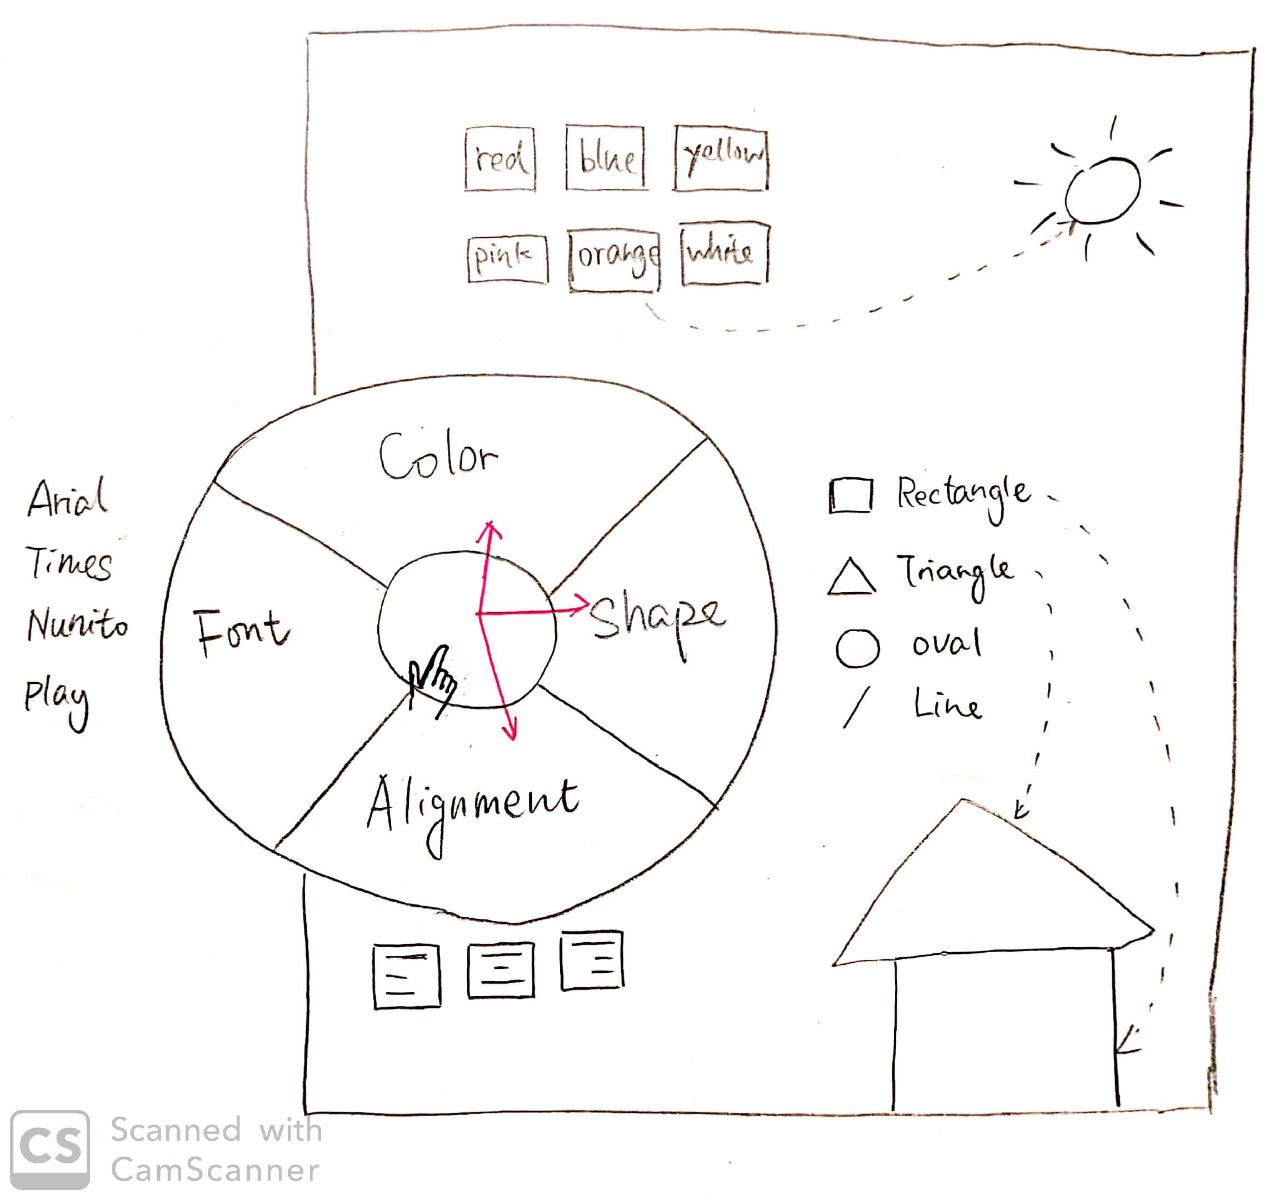 red blue yellow
pink orange white
Color
Arial
Times
Nunito
Play
Font
Shape
Alignment
Rectangle
Triangle
oval
Line
CS
Scanned with
CamScanner